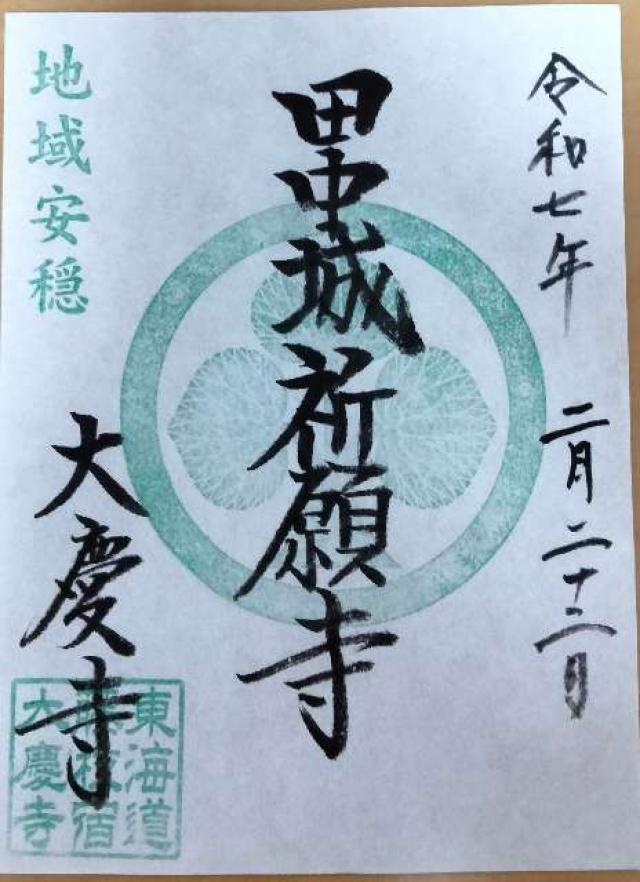 令和七年 二月二十二日
田中城祈願寺
地域安穏
大慶寺
東海道
藤枝宿
大慶寺